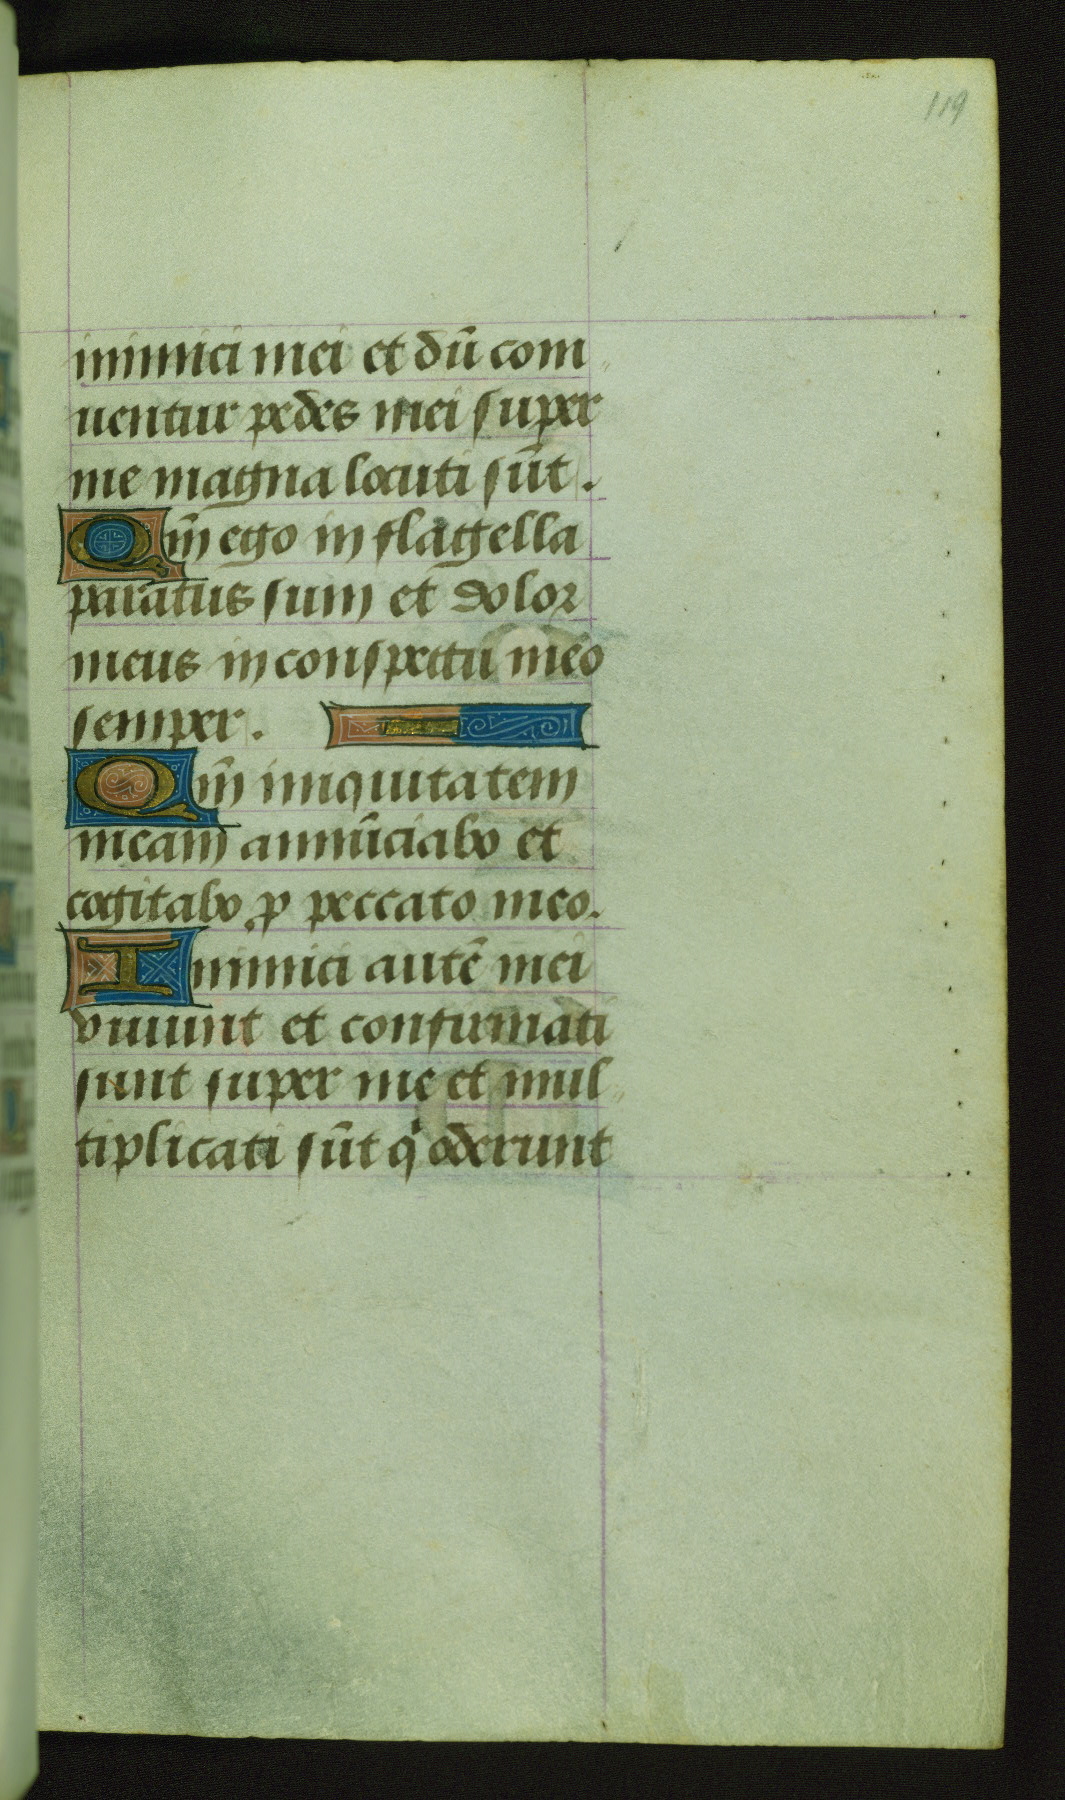 119
inimici mei et dū com〃
uentur pedes mei super
me magna locuti sūt.
Qm̄ ego in flagella
paratus sum et dolor
meus in conspectu meo
semper.
Qm̄ iniquitatem
meam annūciabo et
cogitabo p peccato meo.
Inimici autē mei
viuunt et confirmati
sunt super me et mul〃
tiplicati sūt q' oderunt